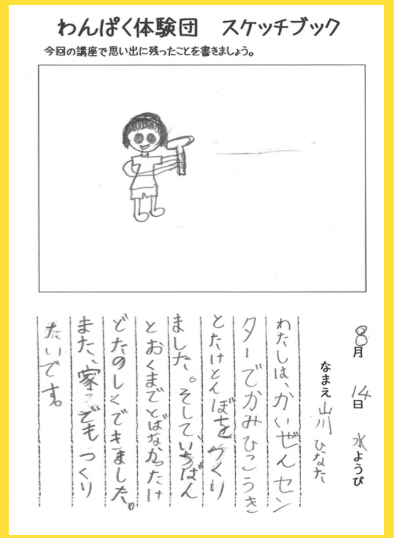 わんぱく体験団 スケッチブック
今回の講座で思い出に残ったことを書きましょう。
8月 14日 水ようび
なまえ 山川 ひなた
わたしは、かいぜんセン
ターでかみひこうき
とたけとんぼをつくり
ました。そしていちばん
とおくまでとばなかったけ
どたのしくできました。
また、家でもつくり
たいです。